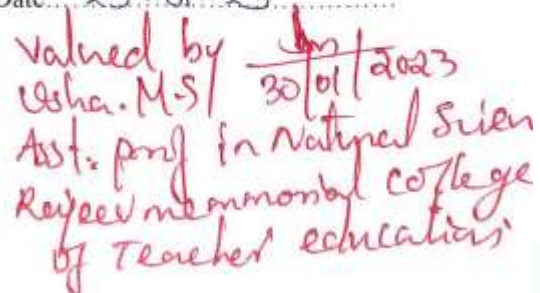 Date 25 01 23
Valued by
30/01/2023
Usha. M.S
Asst. prof in Natural Scien
Rajeev memmorial college
of Teacher education